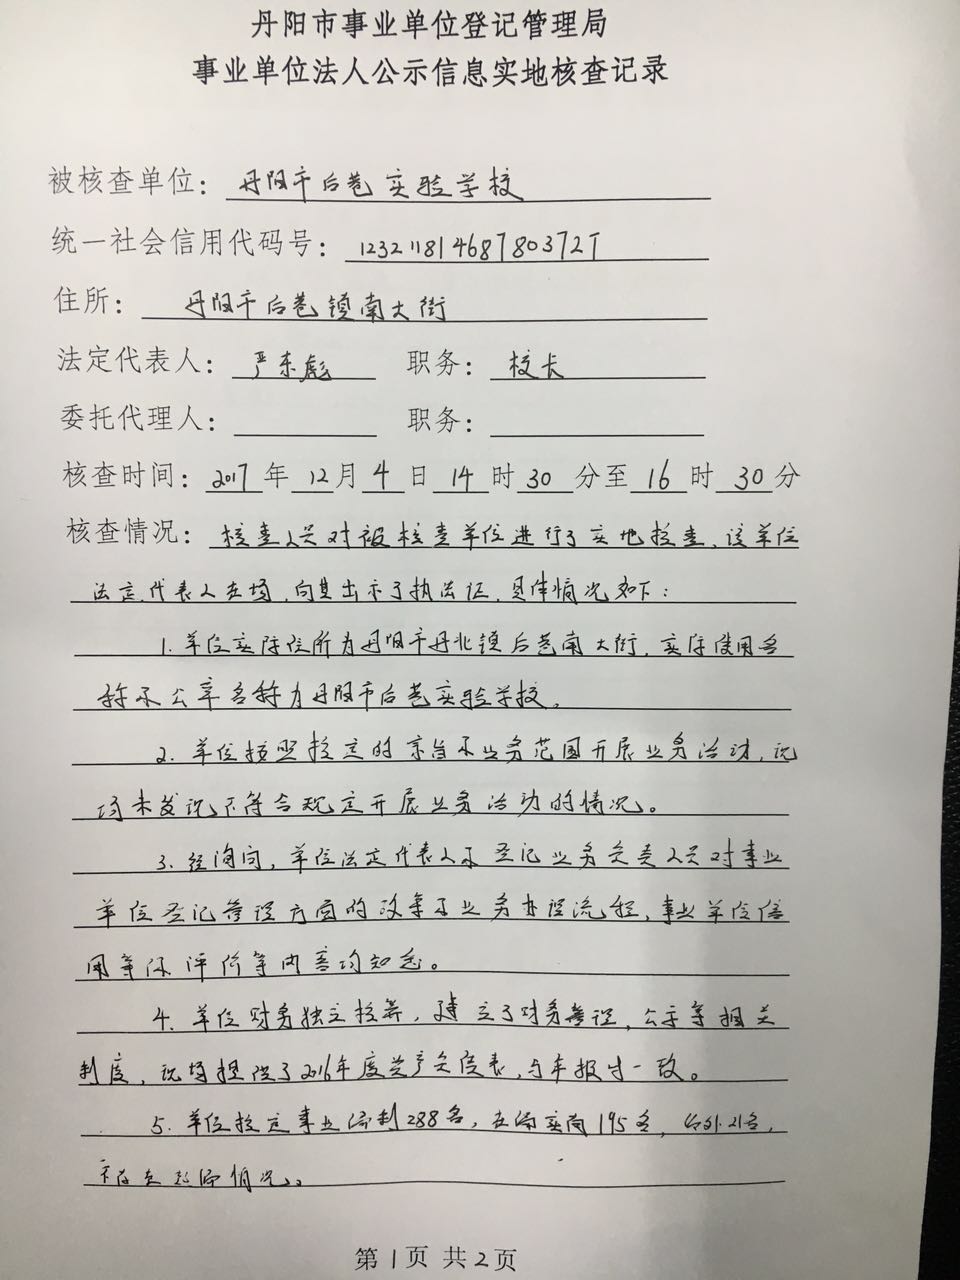 丹阳市事业单位登记管理局
事业单位法人公示信息实地核查记录
被核查单位：丹阳市后巷实验学校
统一社会信用代码号：12321181468780372T
住所：丹阳市后巷镇南大街
法定代表人：严东彪 职务：校长
委托代理人： 职务：
核查时间：2017年12月4日14时30分至16时30分
核查情况：核查人员对被核查单位进行了实地核查，该单位
法定代表人在场，向其出示了执法证，具体情况如下：
1. 单位实际住所为丹阳市丹北镇后巷南大街，实际使用名
称和公章名称为丹阳市后巷实验学校。
2. 单位按照核定的宗旨和业务范围开展业务活动，现
场未发现不符合规定开展业务活动的情况。
3. 经询问，单位法定代表人和登记业务负责人员对事业
单位登记管理方面的政策和业务办理流程，事业单位信
用等级评价等内容均知悉。
4. 单位财务独立核算，建立了财务管理，公示等相关
制度，现场提供了2016年度资产负债表，与年报时一致。
5. 单位核定事业编制288名，在编实有195名，编外21名，
不存在超编情况。
第1页 共2页